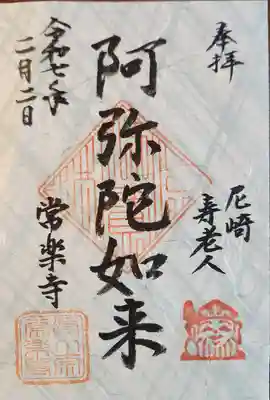 奉拝
尼崎
寿老人
阿弥陀如来
常楽寺
令和七年
二月二日